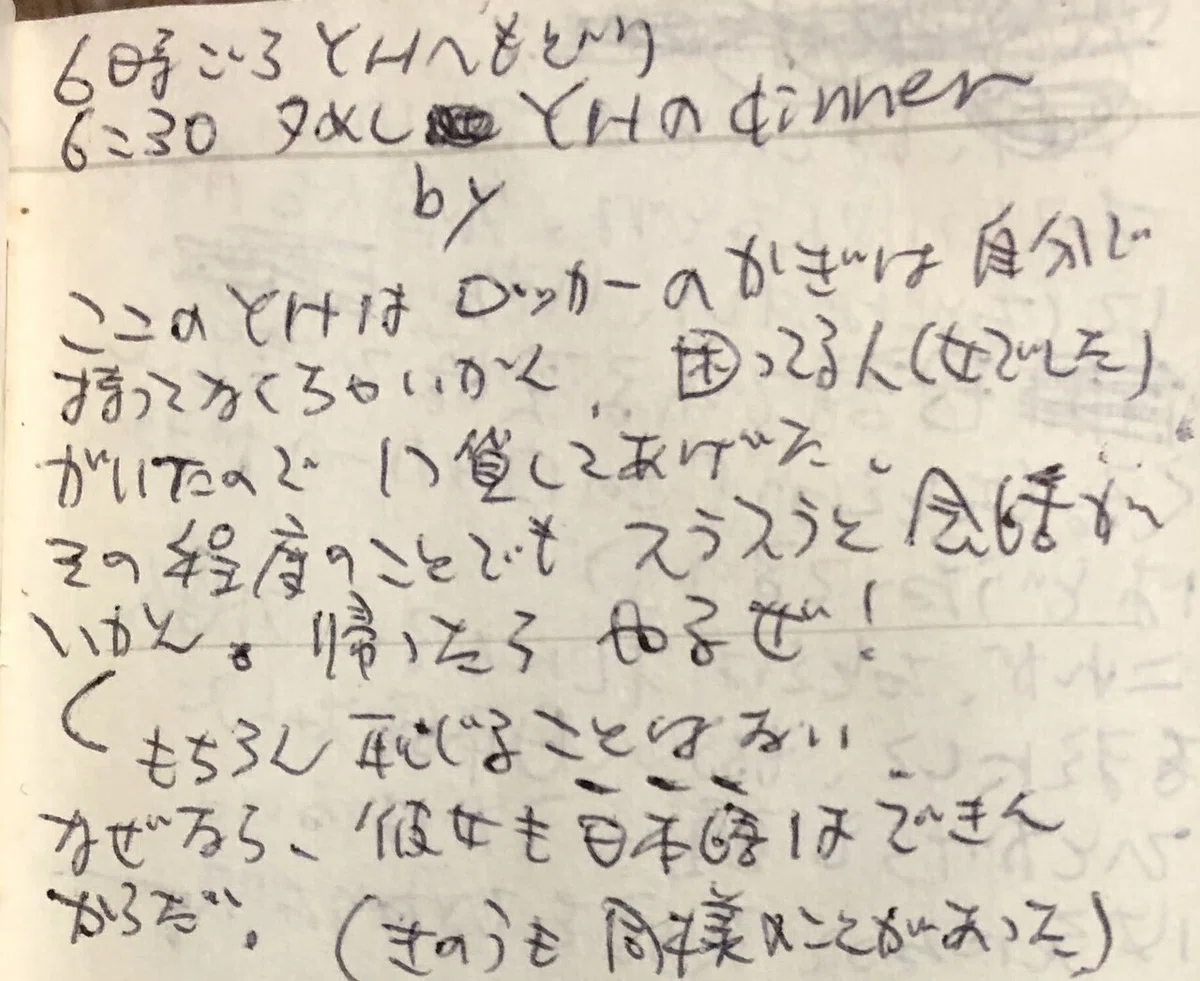 6時ごろ YHへもどり
6:30 夕めし YHの dinner
by
ここのYHは ロッカーのかぎは自分で
持ってなくちゃいかん、困ってる人(女でした)
がいたので 1つ貸してあげた。
その程度のことでも スラスラと会話が
いかん。帰ったら やるぜ!
(もちろん恥じることはない
なぜなら、彼女も日本語はできん
からだ。(きのうも同様のことがあった)